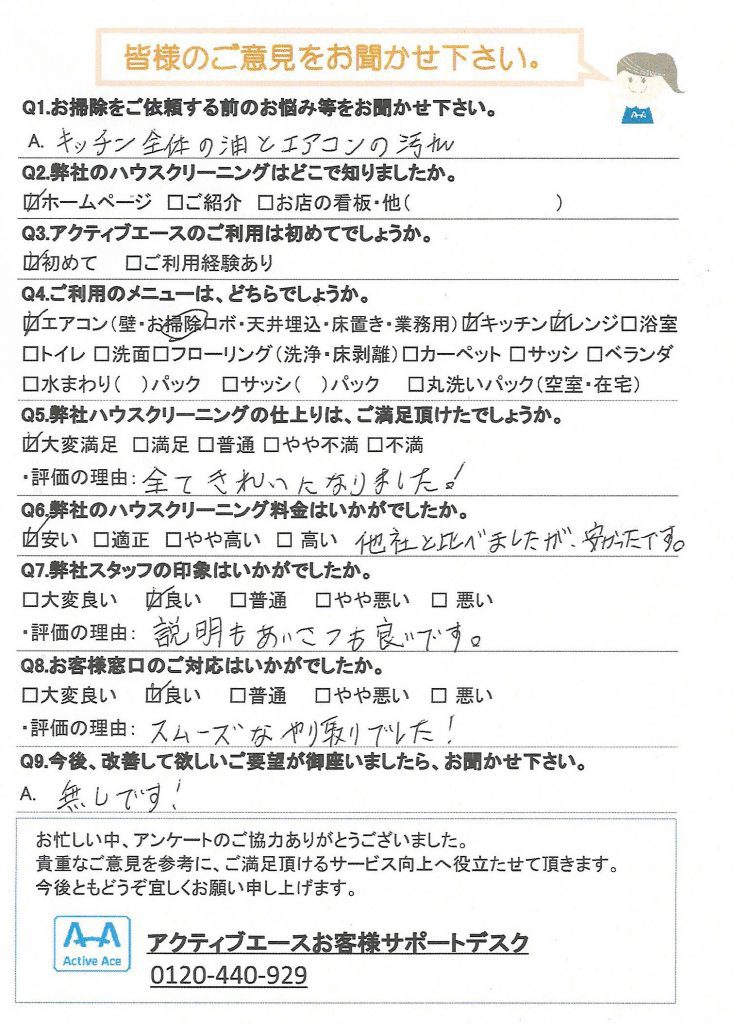 皆様のご意見をお聞かせ下さい。
Q1.お掃除をご依頼する前のお悩み等をお聞かせ下さい。
A. キッチン全体の油とエアコンの汚れ
Q2.弊社のハウスクリーニングはどこで知りましたか。
☑ホームページ □ご紹介 □お店の看板・他( )
Q3.アクティブエースのご利用は初めてでしょうか。
☑初めて □ご利用経験あり
Q4.ご利用のメニューは、どちらでしょうか。
☑エアコン(壁・お掃除ロボ・天井埋込・床置き・業務用)☑キッチン☑レンジ□浴室
□トイレ □洗面□フローリング(洗浄・床剥離)□カーペット □サッシ □ベランダ
□水まわり( )パック □サッシ( )パック □丸洗いパック(空室・在宅)
Q5.弊社ハウスクリーニングの仕上りは、ご満足頂けたでしょうか。
☑大変満足 □満足 □普通 □やや不満 □不満
・評価の理由: 全てきれいになりました!
Q6.弊社のハウスクリーニング料金はいかがでしたか。
☑安い □適正 □やや高い □ 高い 他社と比べましたが、安かったです。
Q7.弊社スタッフの印象はいかがでしたか。
□大変良い ☑良い □普通 □やや悪い □ 悪い
・評価の理由: 説明もあいさつも良いです。
Q8.お客様窓口のご対応はいかがでしたか。
□大変良い ☑良い □普通 □やや悪い □ 悪い
・評価の理由: スムーズなやり取りでした!
Q9.今後、改善して欲しいご要望が御座いましたら、お聞かせ下さい。
A. 無しです!
お忙しい中、アンケートのご協力ありがとうございました。
貴重なご意見を参考に、ご満足頂けるサービス向上へ役立たせて頂きます。
今後ともどうぞ宜しくお願い申し上げます。
Active Ace
アクティブエースお客様サポートデスク
0120-440-929